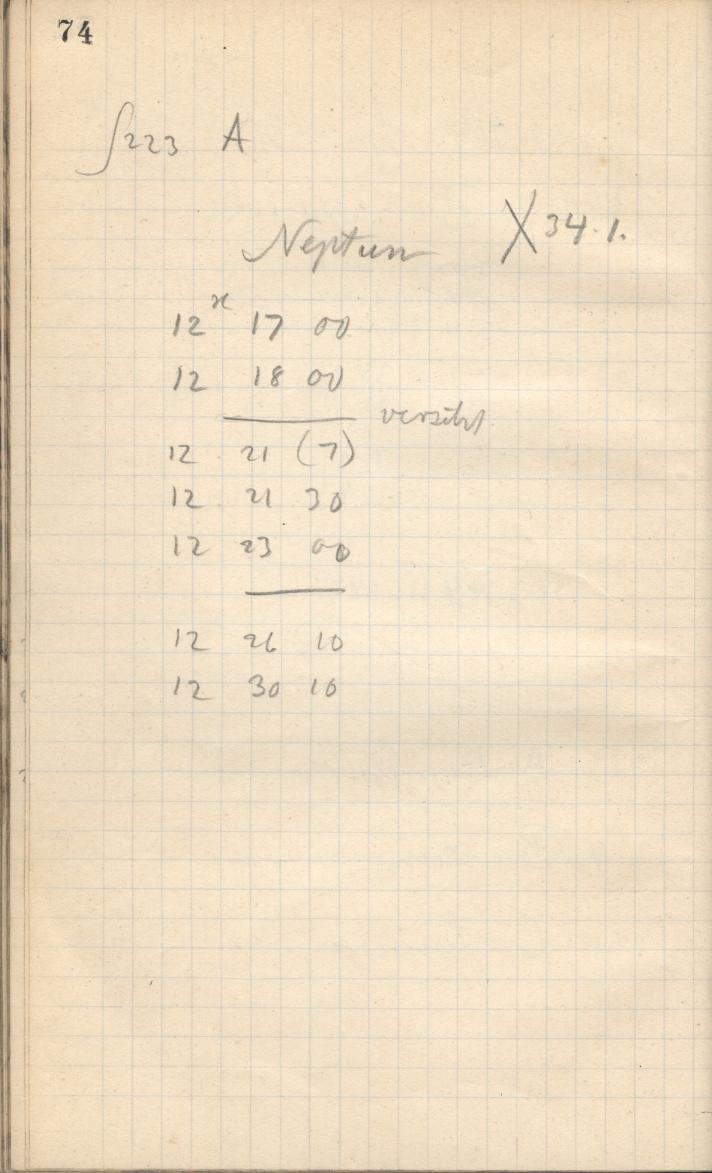 74
∫223 A
Neptun X 34.1.
12 17 00
12 18 00
12 21 (7)
12 21 30
12 23 00
12 26 10
12 30 10